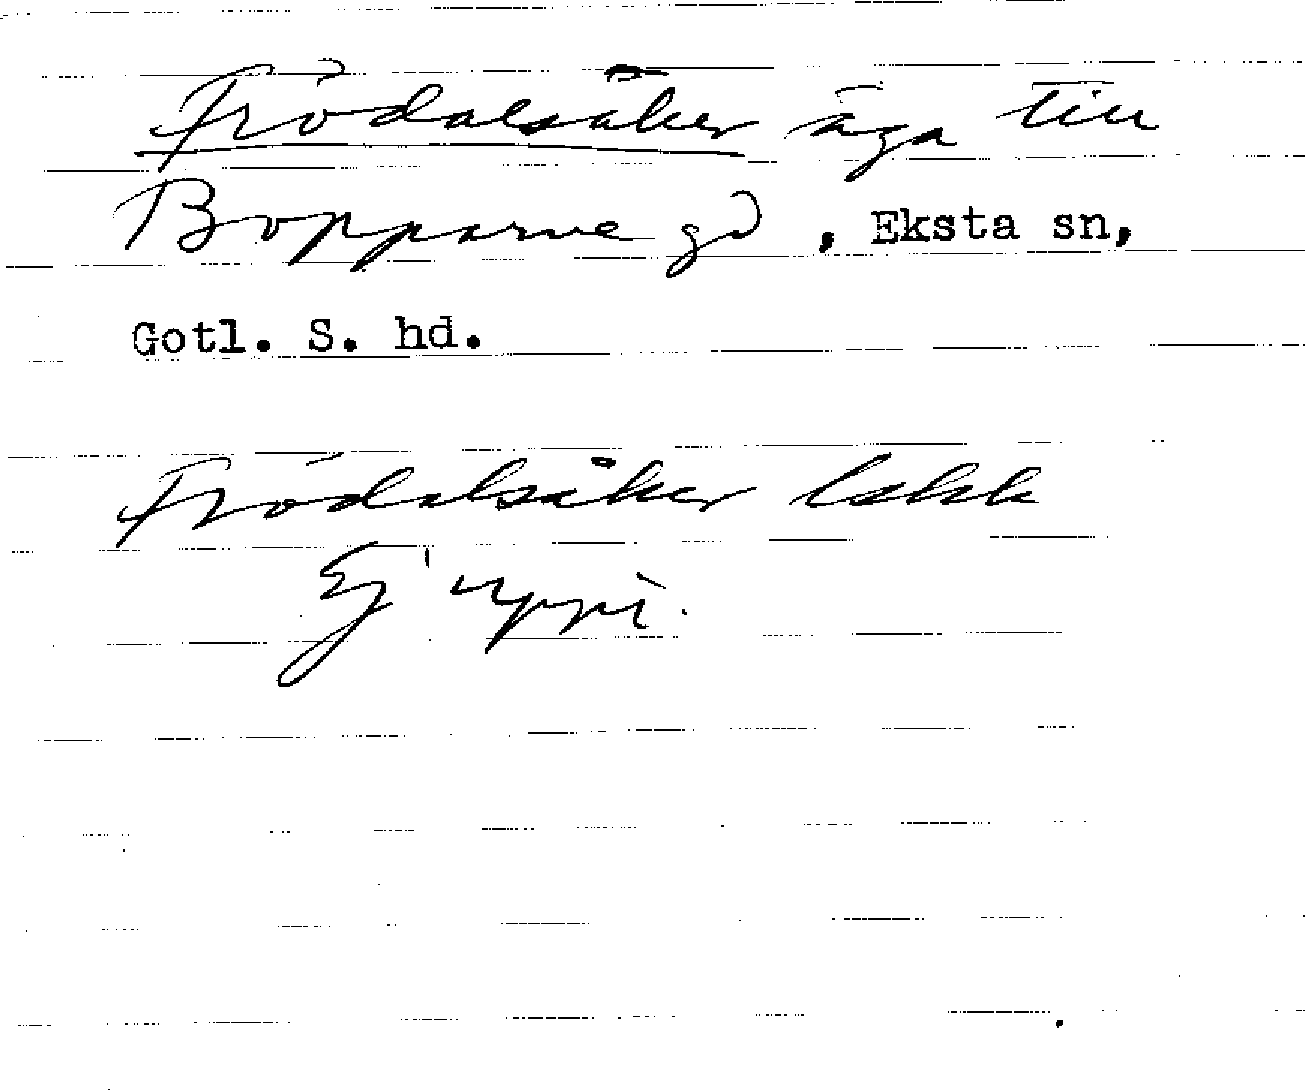 Frödalsåker äga till
Bopparve gd, Eksta sn,
Gotl. S. hd.
Frödalsåker Lskk
Ej uppt.